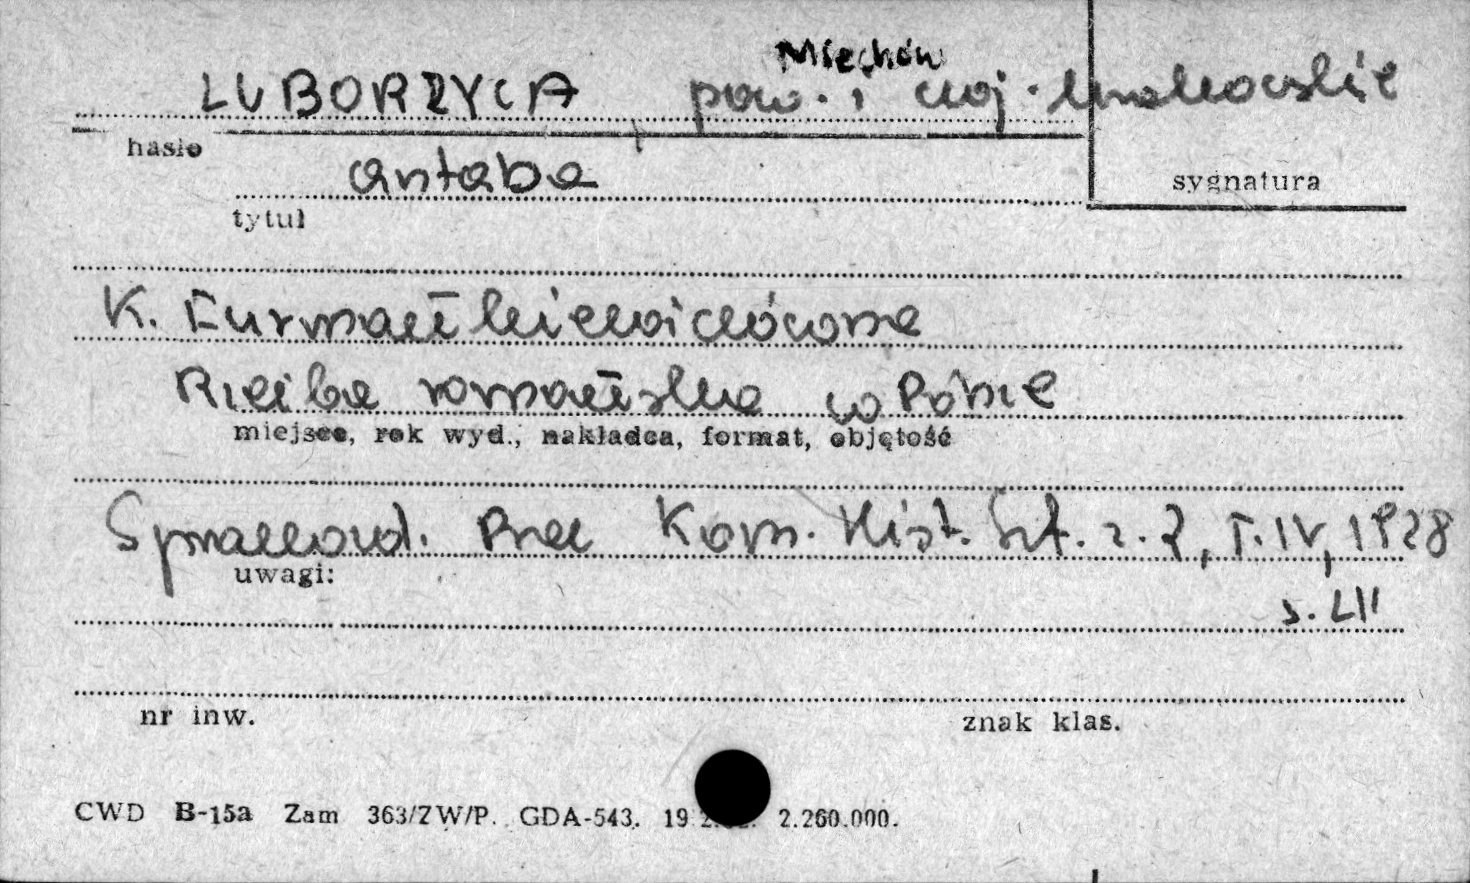 Miechów
LUBORZYCA pow. i woj. krakowskie
hasło
antaba
sygnatura
tytuł
K. Furmankiewiczówna
Rzeźba romańska w Polsce
miejsce, rok wyd., nakładca, format, objętość
Sprawozd. Prac Kom. Hist. Szt. z. 2, T. IV, 1928
uwagi:
s. LII
nr inw.
znak klas.
CWD B-15a Zam 363/ZW/P. GDA-543. 19 2.260.000.